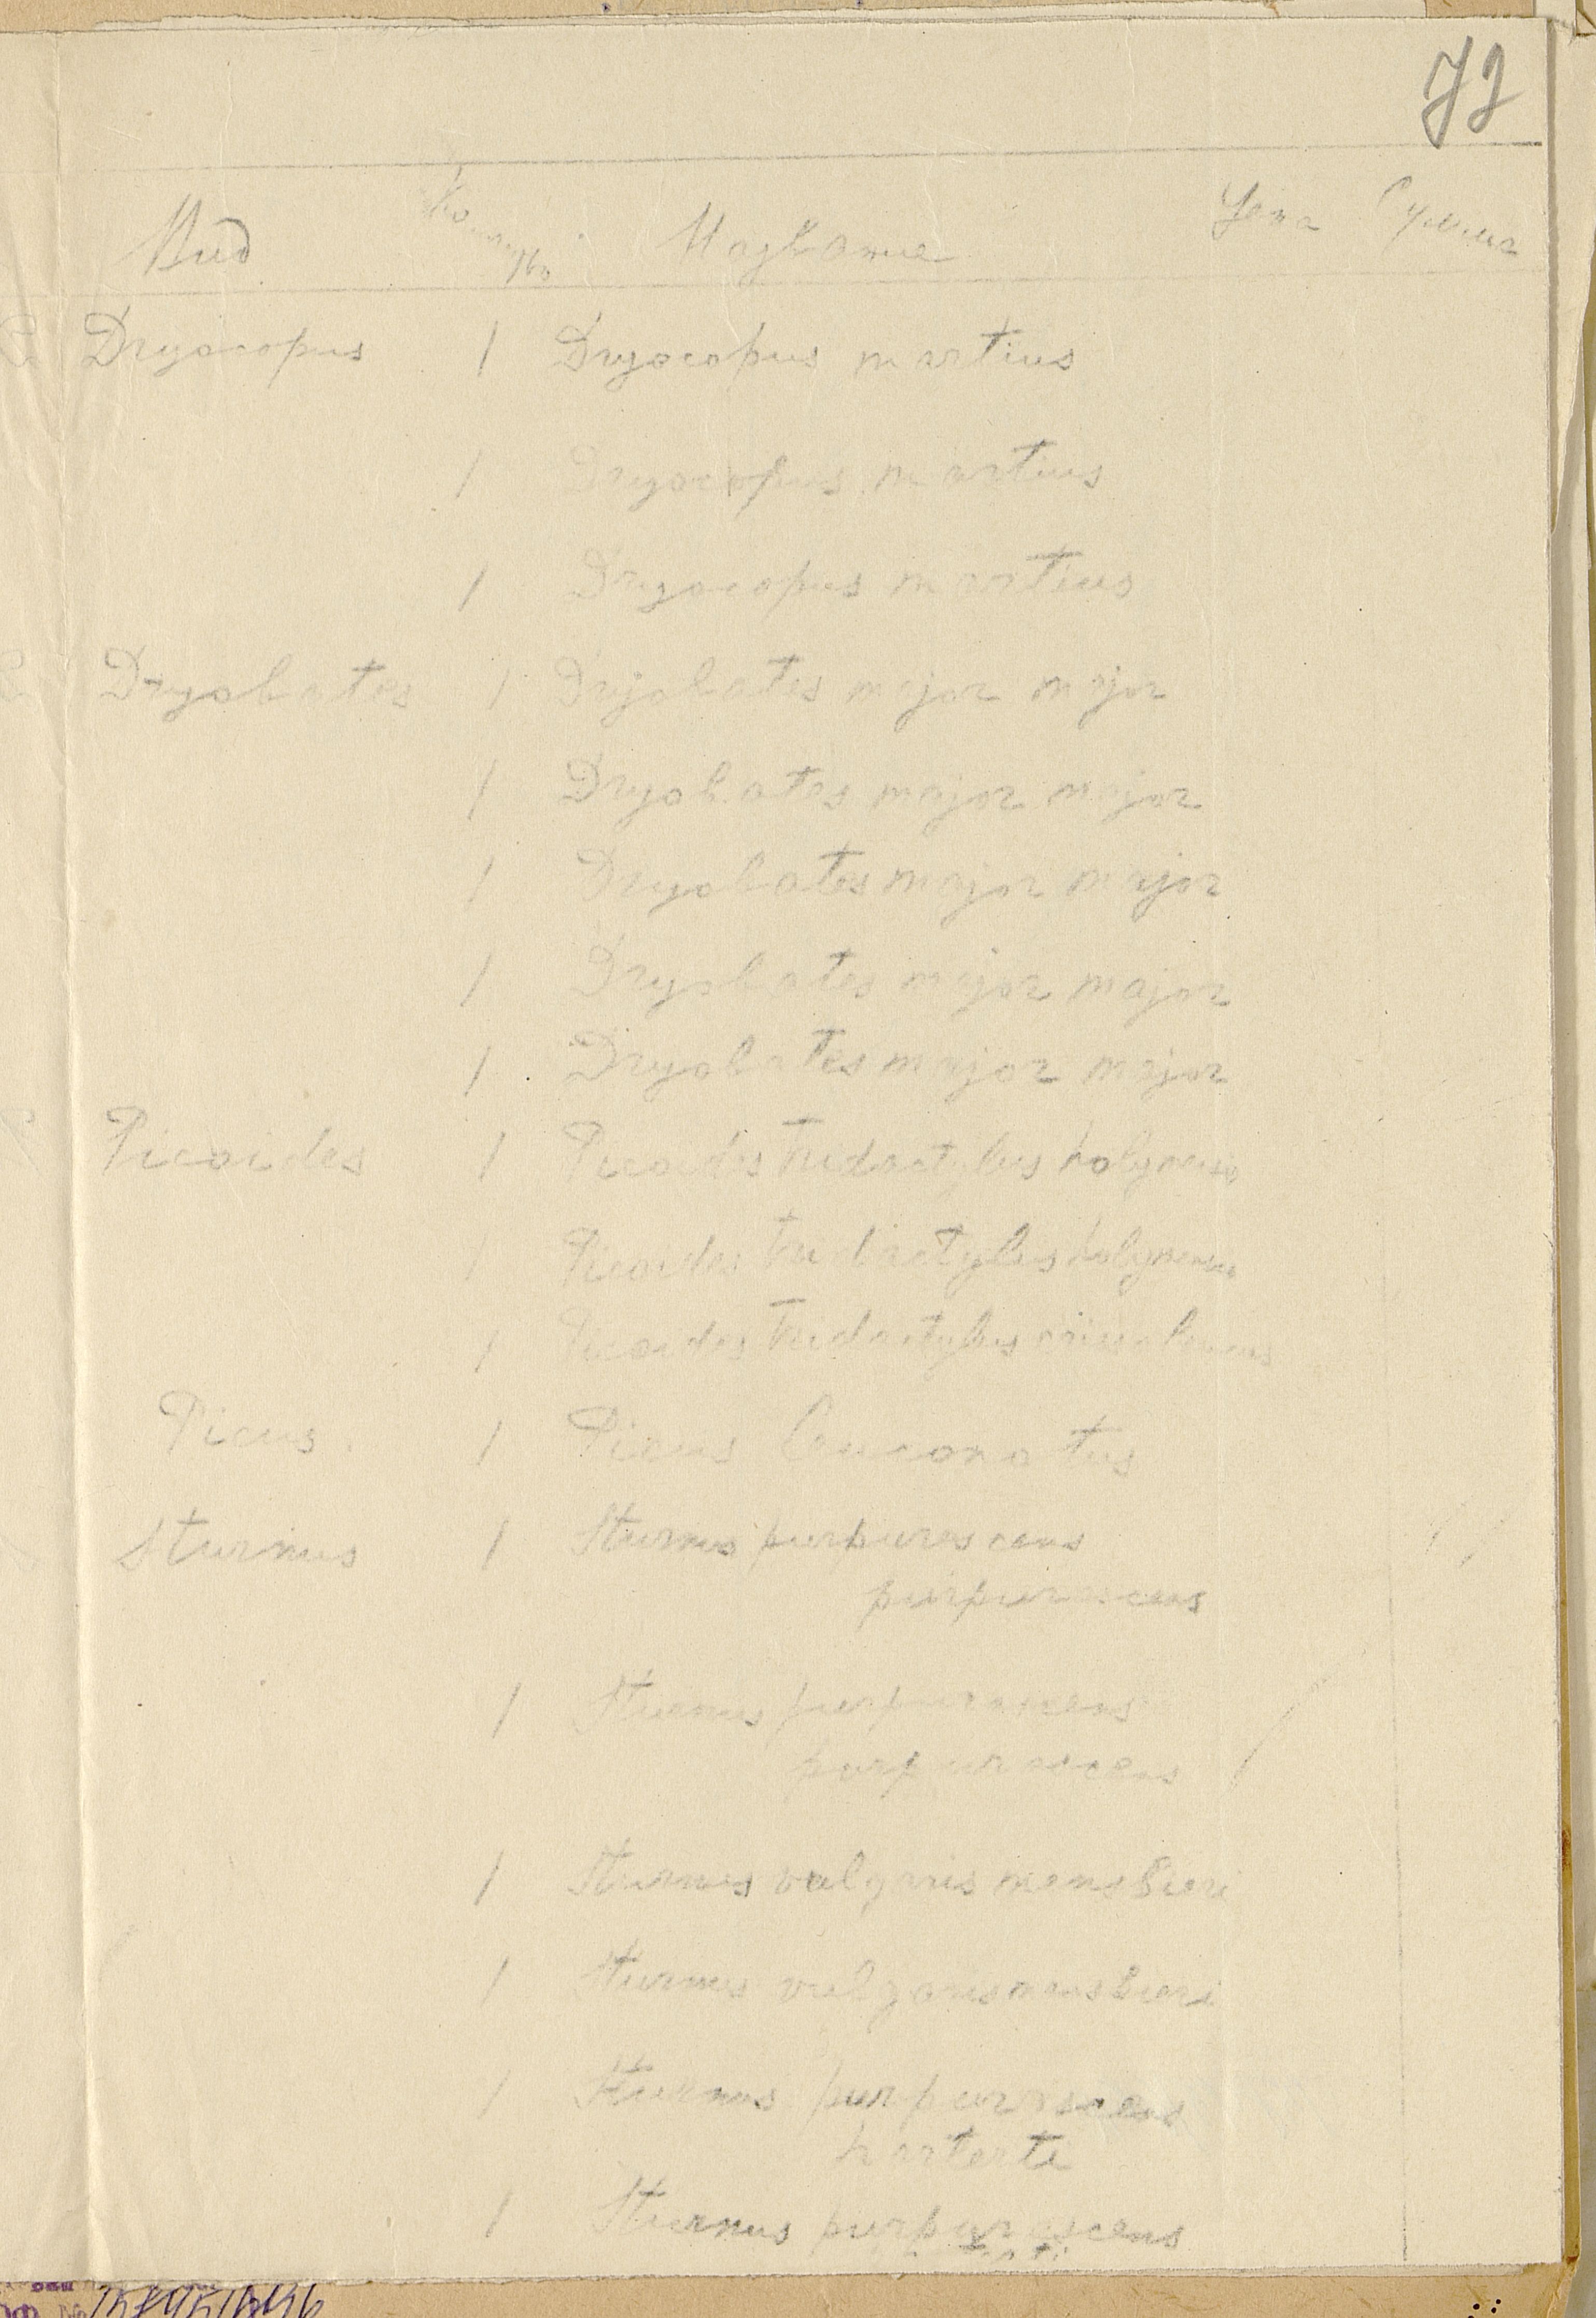 72
Вид Количество Название Цена Сумма
Dryocopus 1 Dryocopus martius
1 Dryocopus martius
1 Dryocopus martius
Dryobates 1 Dryobates major major
1 Dryobates major major
1 Dryobates major major
1 Dryobates major major
1 Dryobates major major
Picoides 1 Picoides tridactylus
1 Picoides tridactylus
1 Picoides tridactylus
Picus 1 Picus leuconotus
Sturnus 1 Sturnus purpurascens
purpurascens
1 Sturnus purpurascens
purpurascens
1 Sturnus vulgaris menzbieri
1 Sturnus vulgaris menzbieri
1 Sturnus purpurascens
harterti
1 Sturnus purpurascens